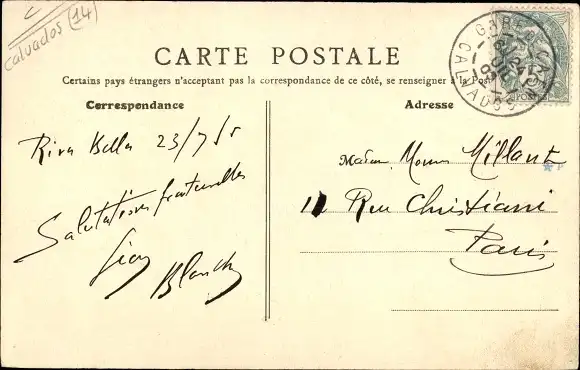 Calvados (14)
CARTE POSTALE
Certains pays étrangers n'acceptent pas la correspondance de ce côté, se renseigner à la Poste
Correspondance
Adresse
Riva Bella 23/7
Salutations fraternelles
Blanch
Millant
11 Rue Christiani
Paris
GARE
CALVADOS